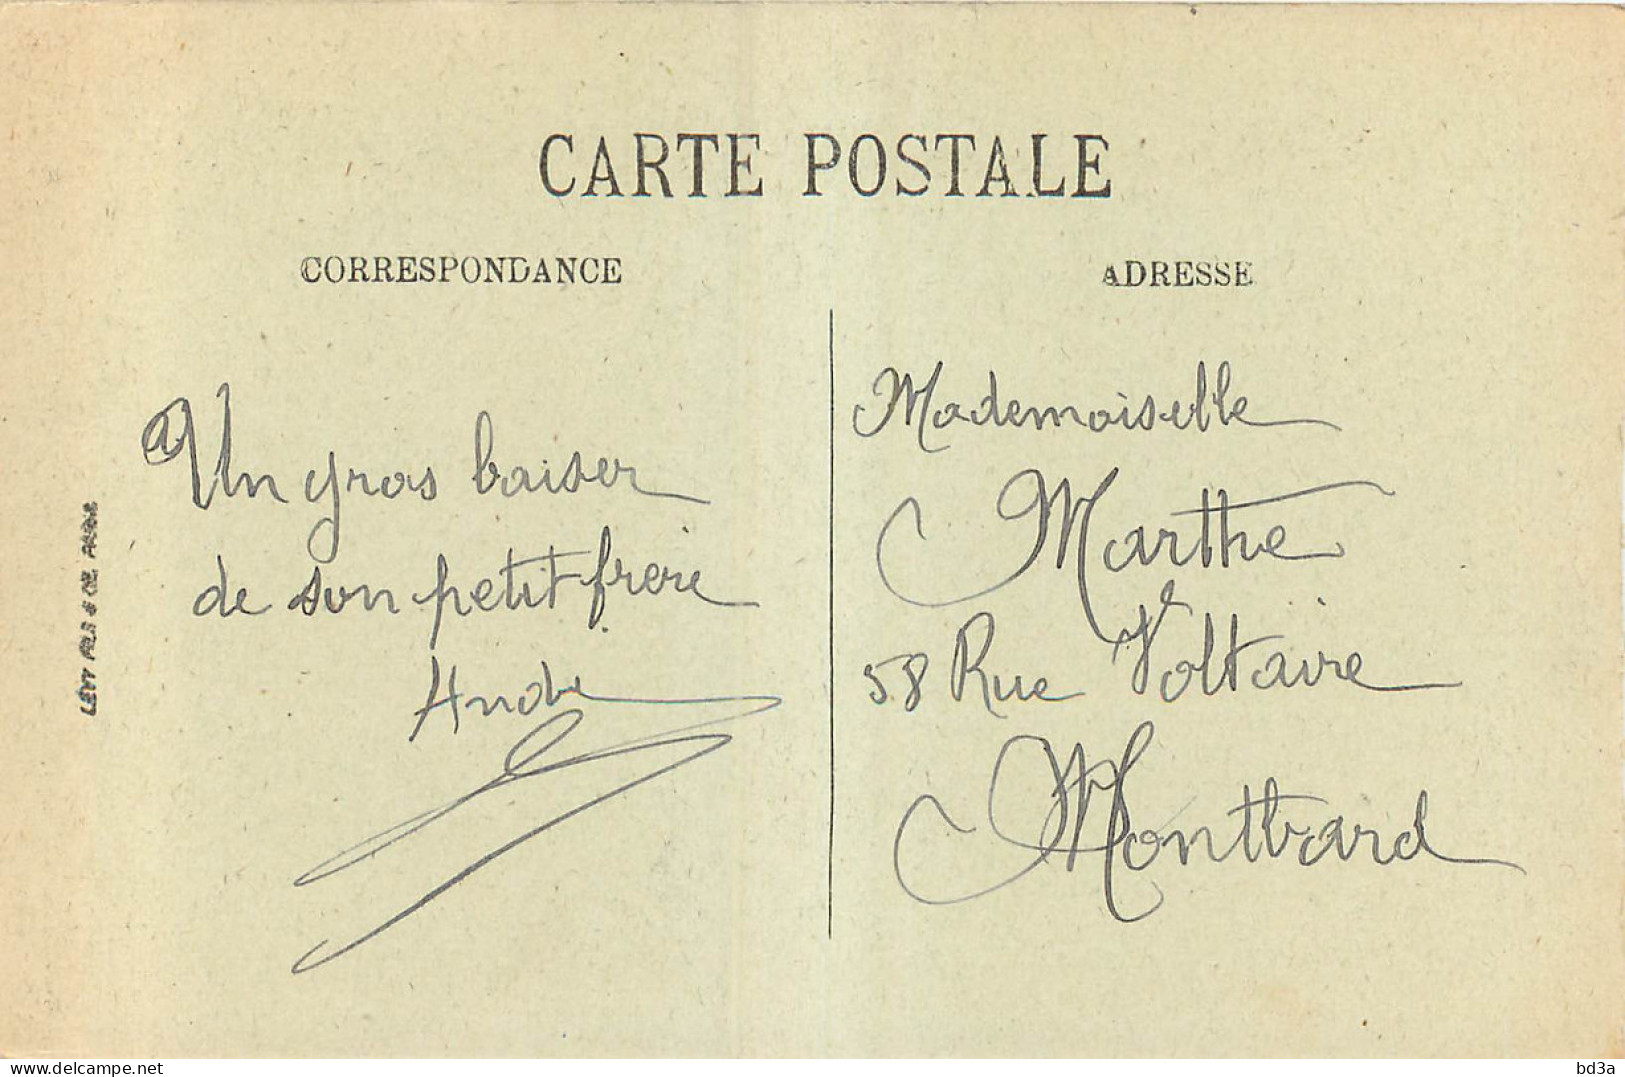 CARTE POSTALE
CORRESPONDANCE
Un gros baiser
de son petit frère
André
ADRESSE
Mademoiselle
Marthe
58 Rue Voltaire
Montbard
LÉVY FILS & CIE, PARIS
www.delcampe.net
bd3a